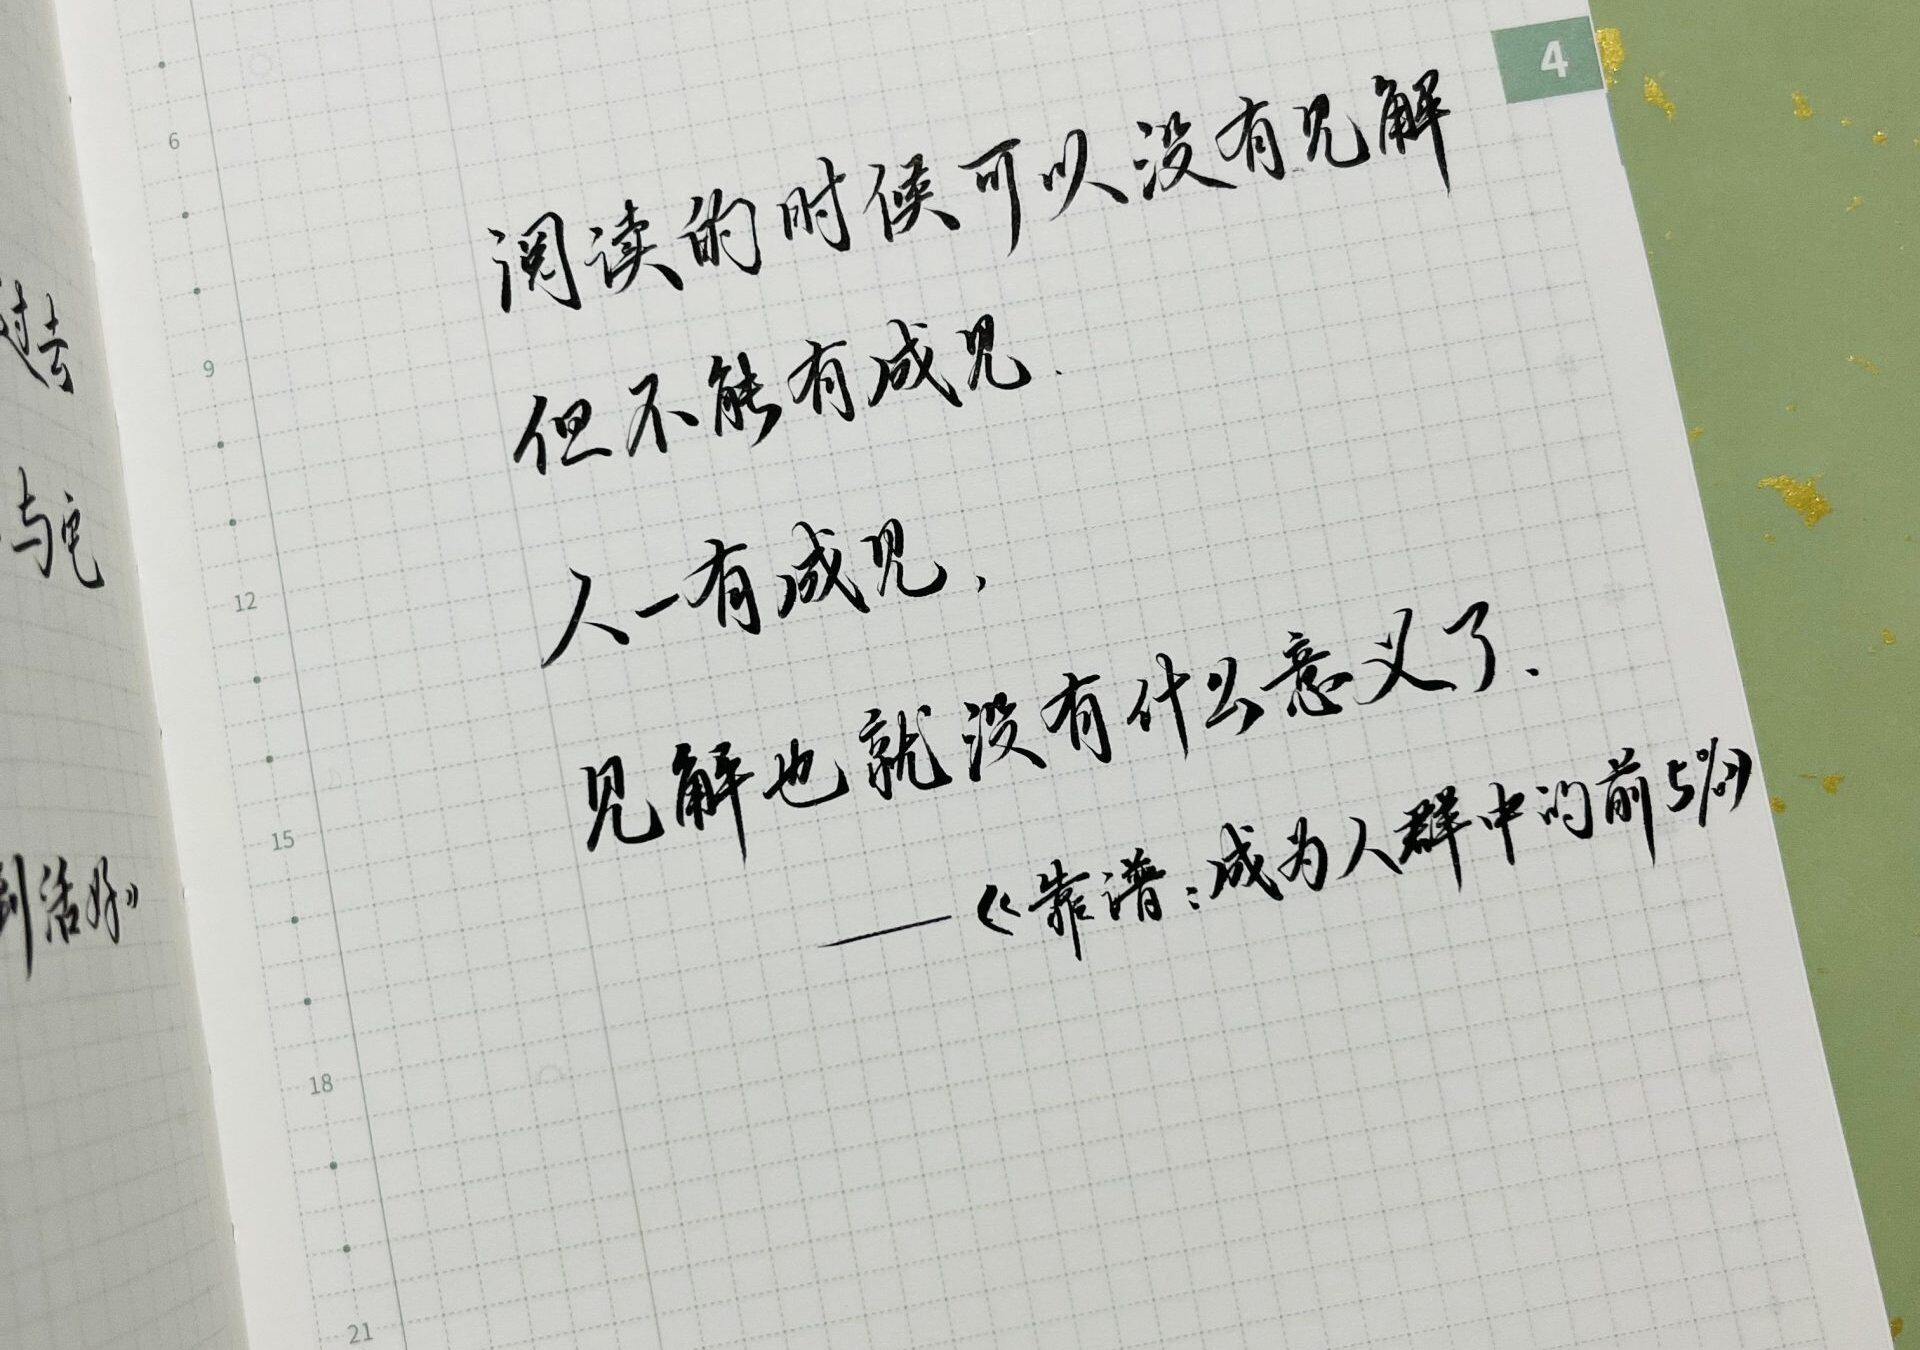 4
6
9
12
15
18
21
阅读的时候可以没有见解
但不能有成见.
人一有成见,
见解也就没有什么意义了.
——《靠谱:成为人群中的前5%》
过去
与它
到活好》